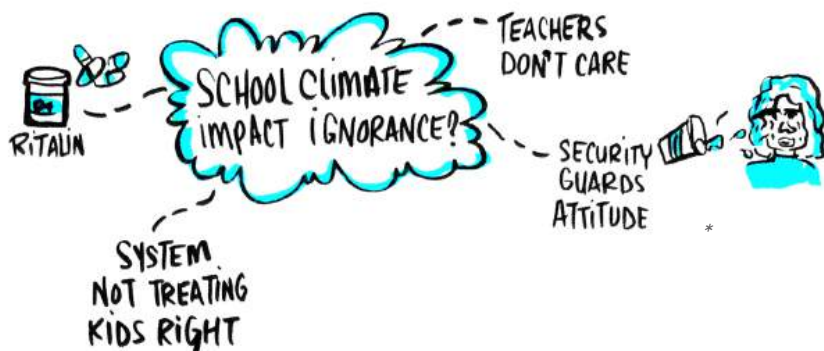 SCHOOL CLIMATE
IMPACT IGNORANCE?
TEACHERS
DON'T CARE
RITALIN
SECURITY
GUARDS
ATTITUDE
*
SYSTEM
NOT TREATING
KIDS RIGHT